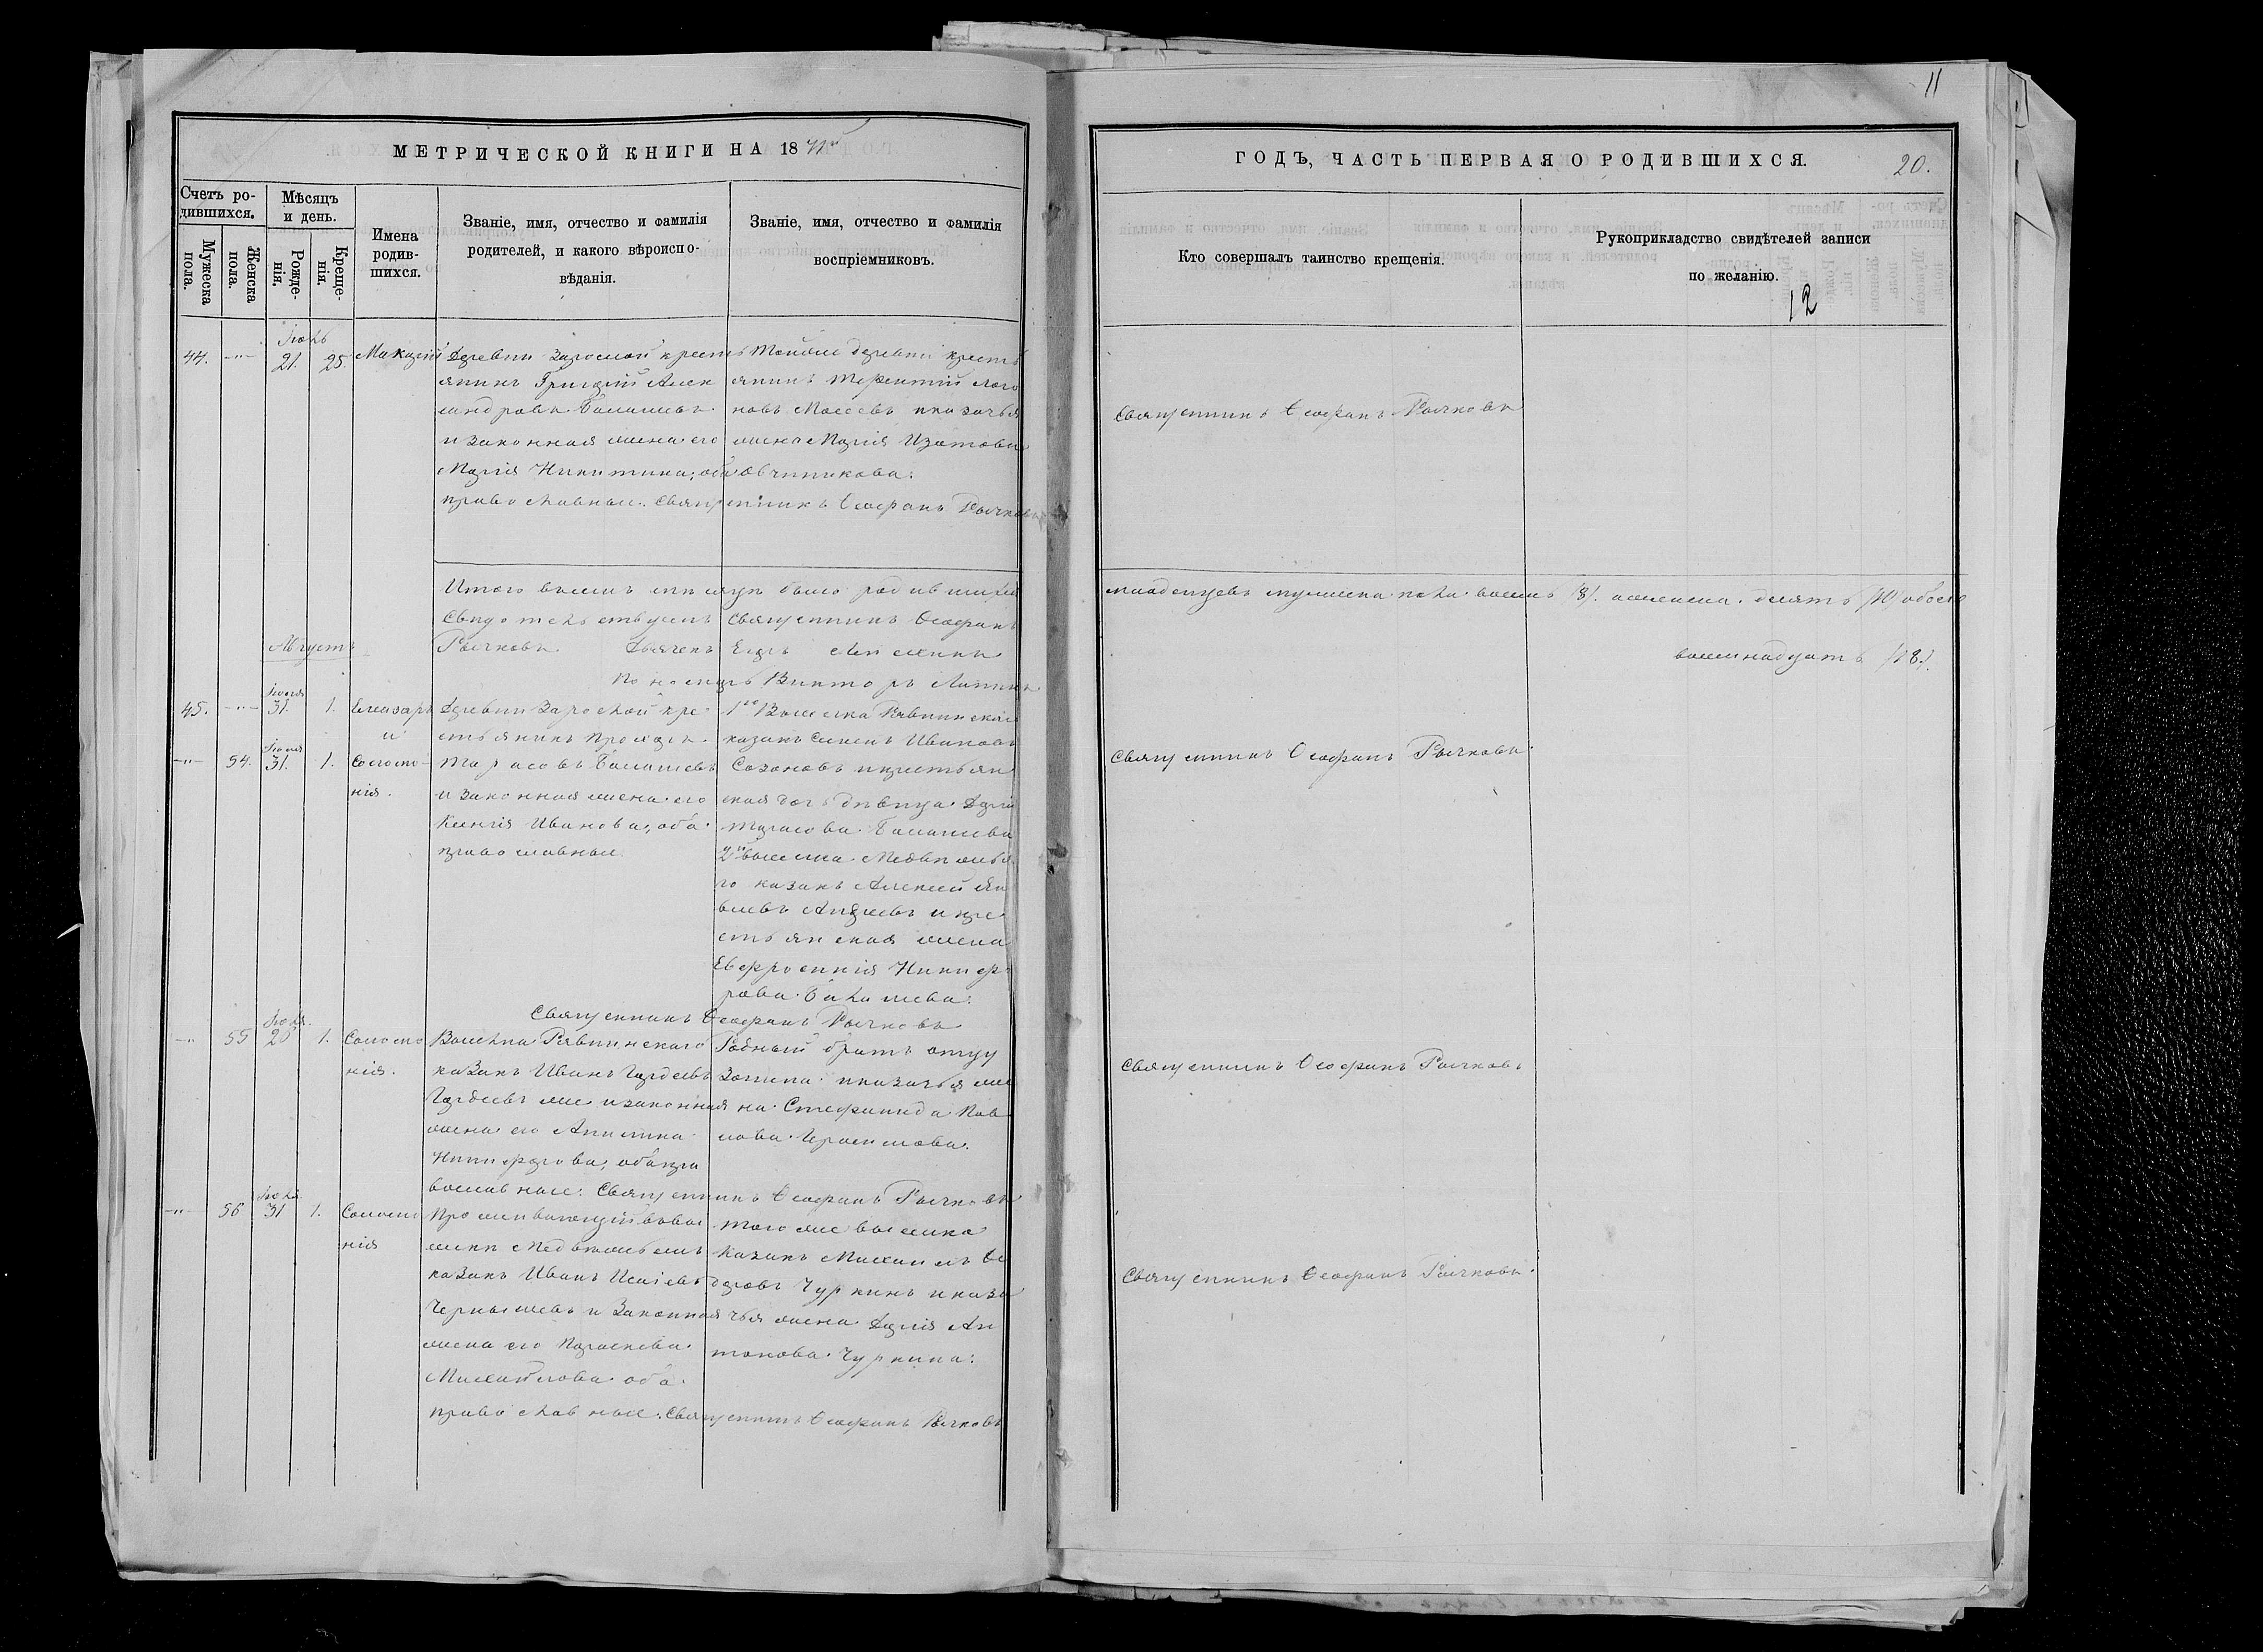 11
МЕТРИЧЕСКОЙ КНИГИ НА 18
ГОДЪ, ЧАСТЬ ПЕРВАЯ О РОДИВШИХСЯ.
20.
Счетъ ро-
дившихся.
Мужеска
пола.
Женска
пола.
Мѣсяцъ
и день.
Рожде-
нія.
Креще-
нія.
Имена
родив-
шихся.
Званіе, имя, отчество и фамилія
родителей, и какого вѣроиспо-
вѣданія.
Званіе, имя, отчество и фамилія
воспріемниковъ.
Кто совершалъ таинство крещенія.
Рукоприкладство свидѣтелей записи
по желанію.
12
44.
-"-
Іюль
21.
25.
Макарій
Деревни Зарослой кресть
янинъ Григорій Алек
сандровъ Балашевъ
и законная жена его
Марія Никитина, оба
православные. Священникъ Ѳеофанъ Рычковъ
Тойже деревни кресть
янинъ Терентій
новъ Моисеевъ и казачья
жена Марія Изотова
Овчинникова.
Священникъ Ѳеофанъ Рычковъ
Итого въ семъ было родившихся
младенцевъ мужеска пола восемь /8/. женска десять /10/ обоего
восемнадцать /18/.
Свидетельствуемъ Священникъ Ѳеофанъ
Рычковъ Дьячекъ
Викторъ
Августъ
45.
-"-
Іюля
31.
1.
Елеазаръ
и
-"-
54.
Іюля
31.
1.
нія.
Деревни Зарослой кре
стьянинъ
Тарасовъ Балашевъ
и законная жена его
Ксенія Иванова, оба
православные.
1го Выселка Рявкинскаго
казакъ Семенъ Ивановъ
Сазоновъ и крестьян
ская дочь дѣвица Дарія
Тарасова Балашева
2го выселка Медвѣжья
го казакъ Алексей Яко
влевъ Андреевъ и кре
стьянская жена
Евфросинія Никифо
рова Балашева.
Священникъ Ѳеофанъ Рычковъ
Священникъ Ѳеофанъ Рычковъ
-"-
55
Іюля
28
1.
Соломо
нія.
Выселка Рявкинскаго
казакъ Иванъ Гордеевъ
Гордеевъ же и законная
жена его Апилина
Никифорова, оба пра
вославные. Священникъ Ѳеофанъ Рычковъ
Родный братъ отцу
и казачья же
на Степанида Пав
лова Герасимова.
Священникъ Ѳеофанъ Рычковъ
-"-
56
Іюля
31
1.
Соломо
нія
Проживающій въ вы
селке Медвѣжьемъ
казакъ Иванъ Исаіевъ
Чернышевъ и законная
жена его Параскева
Михайлова оба
православные. Священникъ Ѳеофанъ Рычковъ
Того же выселка
казакъ Михаилъ Ѳе
доровъ Чуркинъ и каза
чья жена Дарія Ан
тонова Чуркина.
Священникъ Ѳеофанъ Рычковъ.